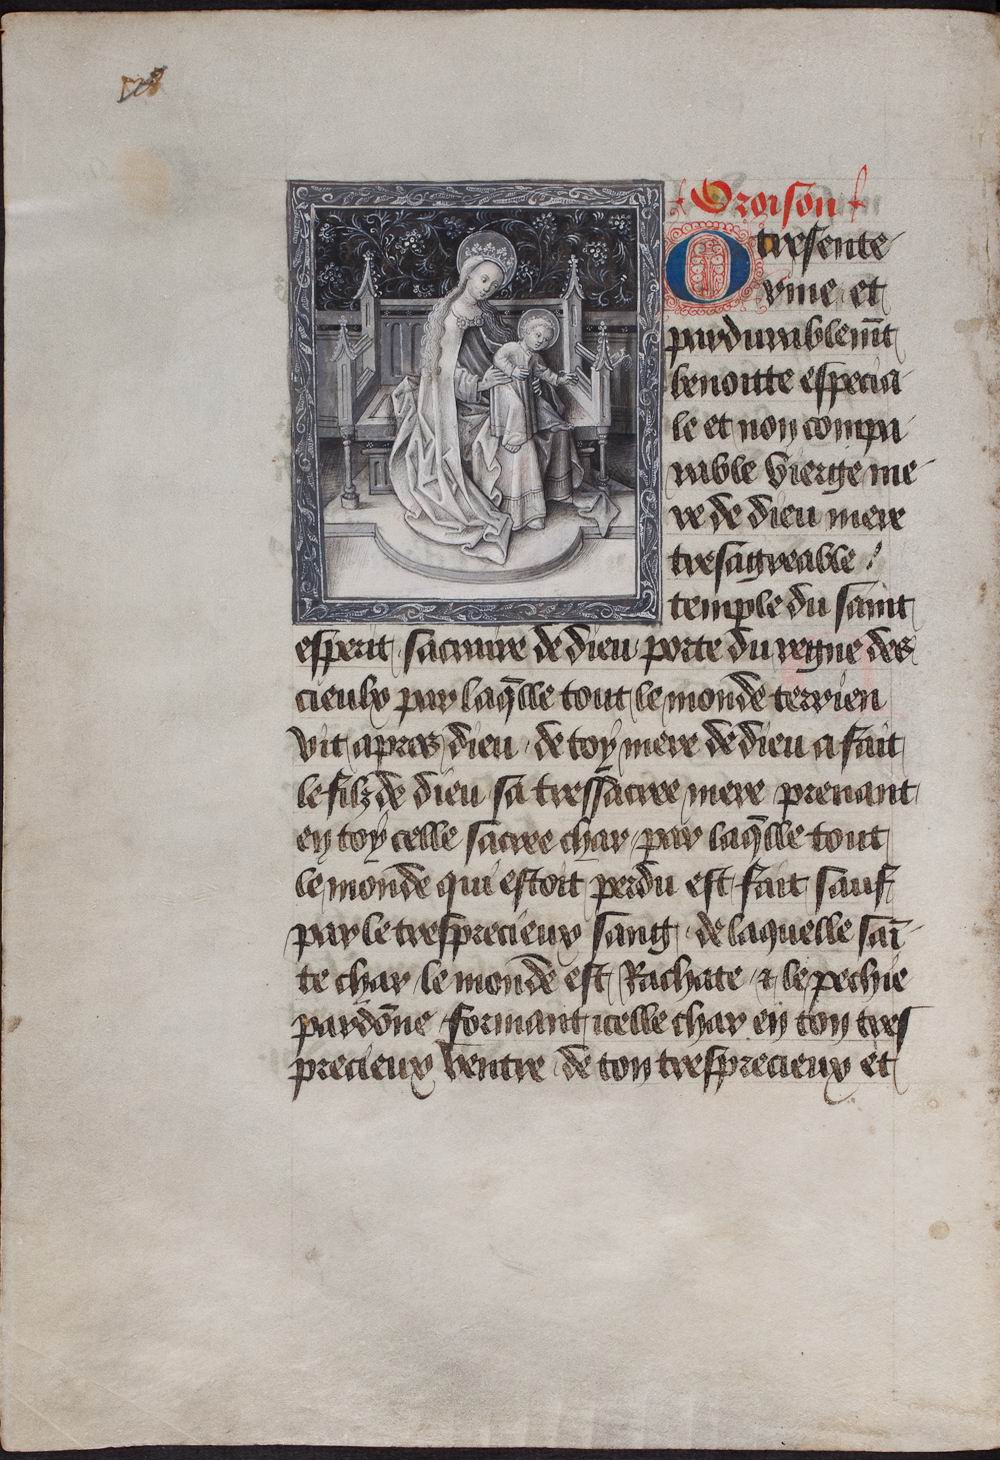 Oroison
O tresente
rine et
pardurablem̄t
benoitte especia
le et non compa
rable vierge me
re de dieu mere
tresagreable /
temple du saint
esperit sacraire de dieu porte du regne des
cieulx par laq̄lle tout le monde terrien
vit apres dieu de toy mere de dieu a fait
le filz de dieu sa tressacree mere prenant
en toy celle sacree char par laq̄lle tout
le monde qui estoit perdu est fait sauf
par le tresprecieux sang de laquelle saī
te char le monde est Rachate & le pechie
pardōne formant icelle char en ton tres
precieux ventre de ton tresprecieux et